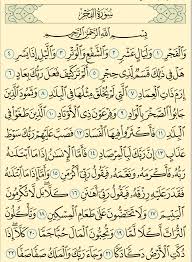 سُورَةُ الفَجْرِ
بِسْمِ ٱللَّهِ ٱلرَّحْمَٰنِ ٱلرَّحِيمِ
وَٱلْفَجْرِ ١ وَلَيَالٍ عَشْرٍ ٢ وَٱلشَّفْعِ وَٱلْوَتْرِ ٣ وَٱلَّيْلِ إِذَا يَسْرِ ٤
هَلْ فِى ذَٰلِكَ قَسَمٌ لِّذِى حِجْرٍ ٥ أَلَمْ تَرَ كَيْفَ فَعَلَ رَبُّكَ بِعَادٍ ٦
إِرَمَ ذَاتِ ٱلْعِمَادِ ٧ ٱلَّتِى لَمْ يُخْلَقْ مِثْلُهَا فِى ٱلْبِلَٰدِ ٨ وَثَمُودَ ٱلَّذِينَ
جَابُوا۟ ٱلصَّخْرَ بِٱلْوَادِ ٩ وَفِرْعَوْنَ ذِى ٱلْأَوْتَادِ ١٠ ٱلَّذِينَ طَغَوْا۟ فِى
ٱلْبِلَٰدِ ١١ فَأَكْثَرُوا۟ فِيهَا ٱلْفَسَادَ ١٢ فَصَبَّ عَلَيْهِمْ رَبُّكَ سَوْطَ
عَذَابٍ ١٣ إِنَّ رَبَّكَ لَبِٱلْمِرْصَادِ ١٤ فَأَمَّا ٱلْإِنسَٰنُ إِذَا مَا ٱبْتَلَىٰهُ
رَبُّهُۥ فَأَكْرَمَهُۥ وَنَعَّمَهُۥ فَيَقُولُ رَبِّىٓ أَكْرَمَنِ ١٥ وَأَمَّآ إِذَا مَا ٱبْتَلَىٰهُ
فَقَدَرَ عَلَيْهِ رِزْقَهُۥ فَيَقُولُ رَبِّىٓ أَهَٰنَنِ ١٦ كَلَّا بَل لَّا تُكْرِمُونَ
ٱلْيَتِيمَ ١٧ وَلَا تَحَٰٓضُّونَ عَلَىٰ طَعَامِ ٱلْمِسْكِينِ ١٨ وَتَأْكُلُونَ
ٱلتُّرَاثَ أَكْلًا لَّمًّا ١٩ وَتُحِبُّونَ ٱلْمَالَ حُبًّا جَمًّا ٢٠ كَلَّآ إِذَا
دُكَّتِ ٱلْأَرْضُ دَكًّا دَكًّا ٢١ وَجَآءَ رَبُّكَ وَٱلْمَلَكُ صَفًّا صَفًّا ٢٢